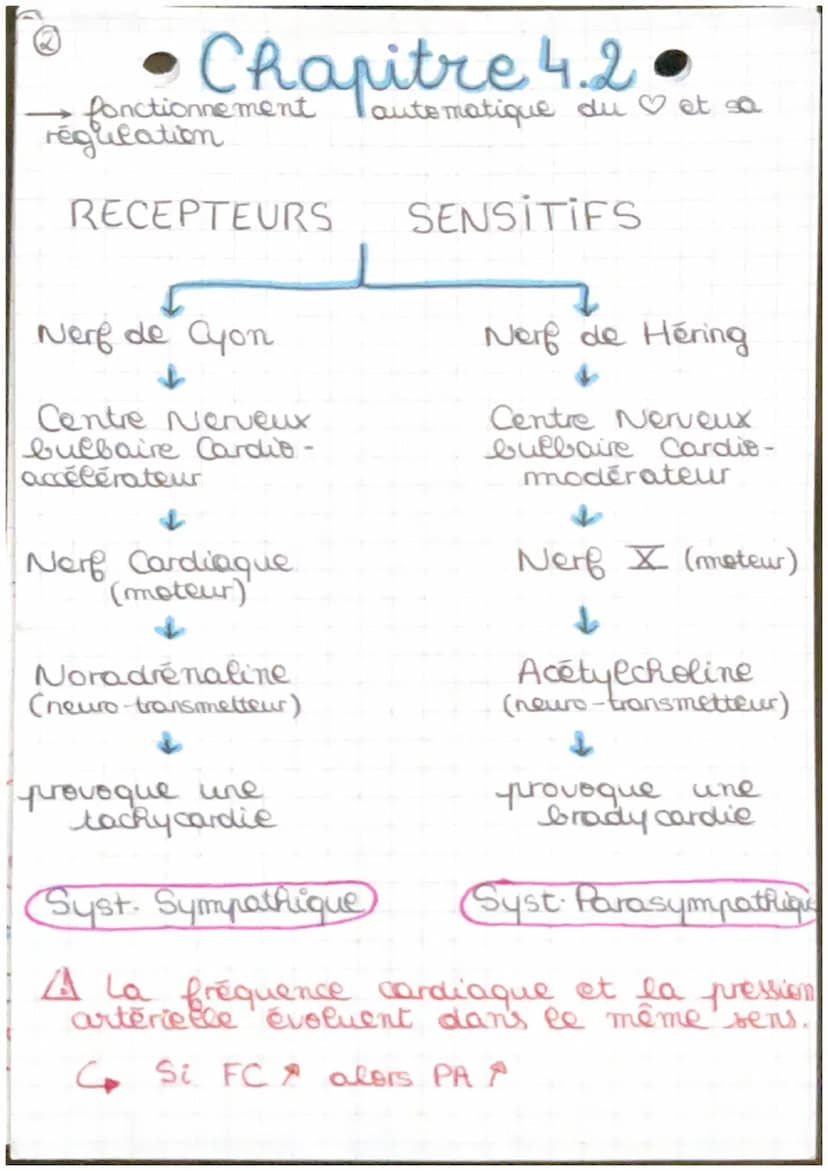 ②
Chapitre 4.2
→ fonctionnement automatique du ♡ et sa
régulation
RECEPTEURS SENSITIFS
Nerf de Cyon
↓
Centre Nerveux
bulbaire Cardio-
accélérateur
↓
Nerf Cardiaque
(moteur)
↓
Noradrénaline
(neuro-transmetteur)
↓
provoque une
tachycardie
Syst. Sympathique
Nerf de Héring
↓
Centre Nerveux
bulbaire Cardio-
modérateur
↓
Nerf X (moteur)
↓
Acétylcholine
(neuro-transmetteur)
↓
provoque une
bradycardie
Syst. Parasympathique
⚠ La fréquence cardiaque et la pression
artérielle évoluent dans le même sens.
↳ Si FC ↗ alors PA ↗